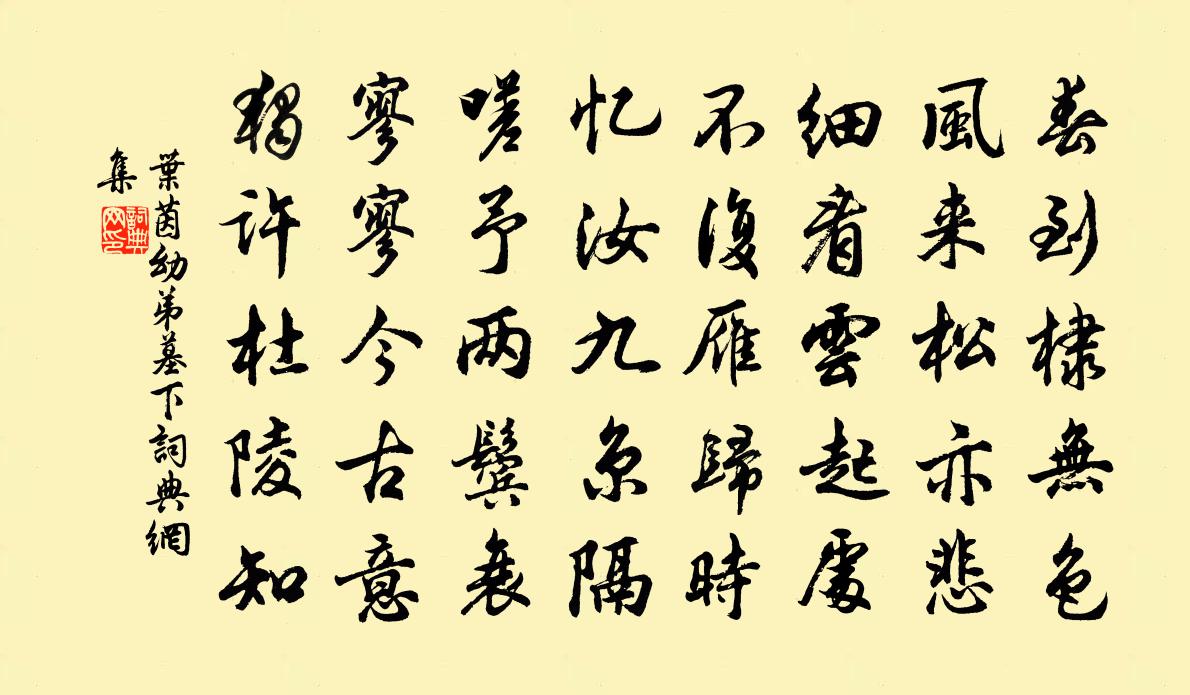 春到棣無色
風来松亦悲
細看雲起處
不復雁歸時
忆汝九原隔
嗟予两鬓衰
寥寥今古意
独許杜陵知
葉茵幼弟墓下詞典網
集
詞典
网印